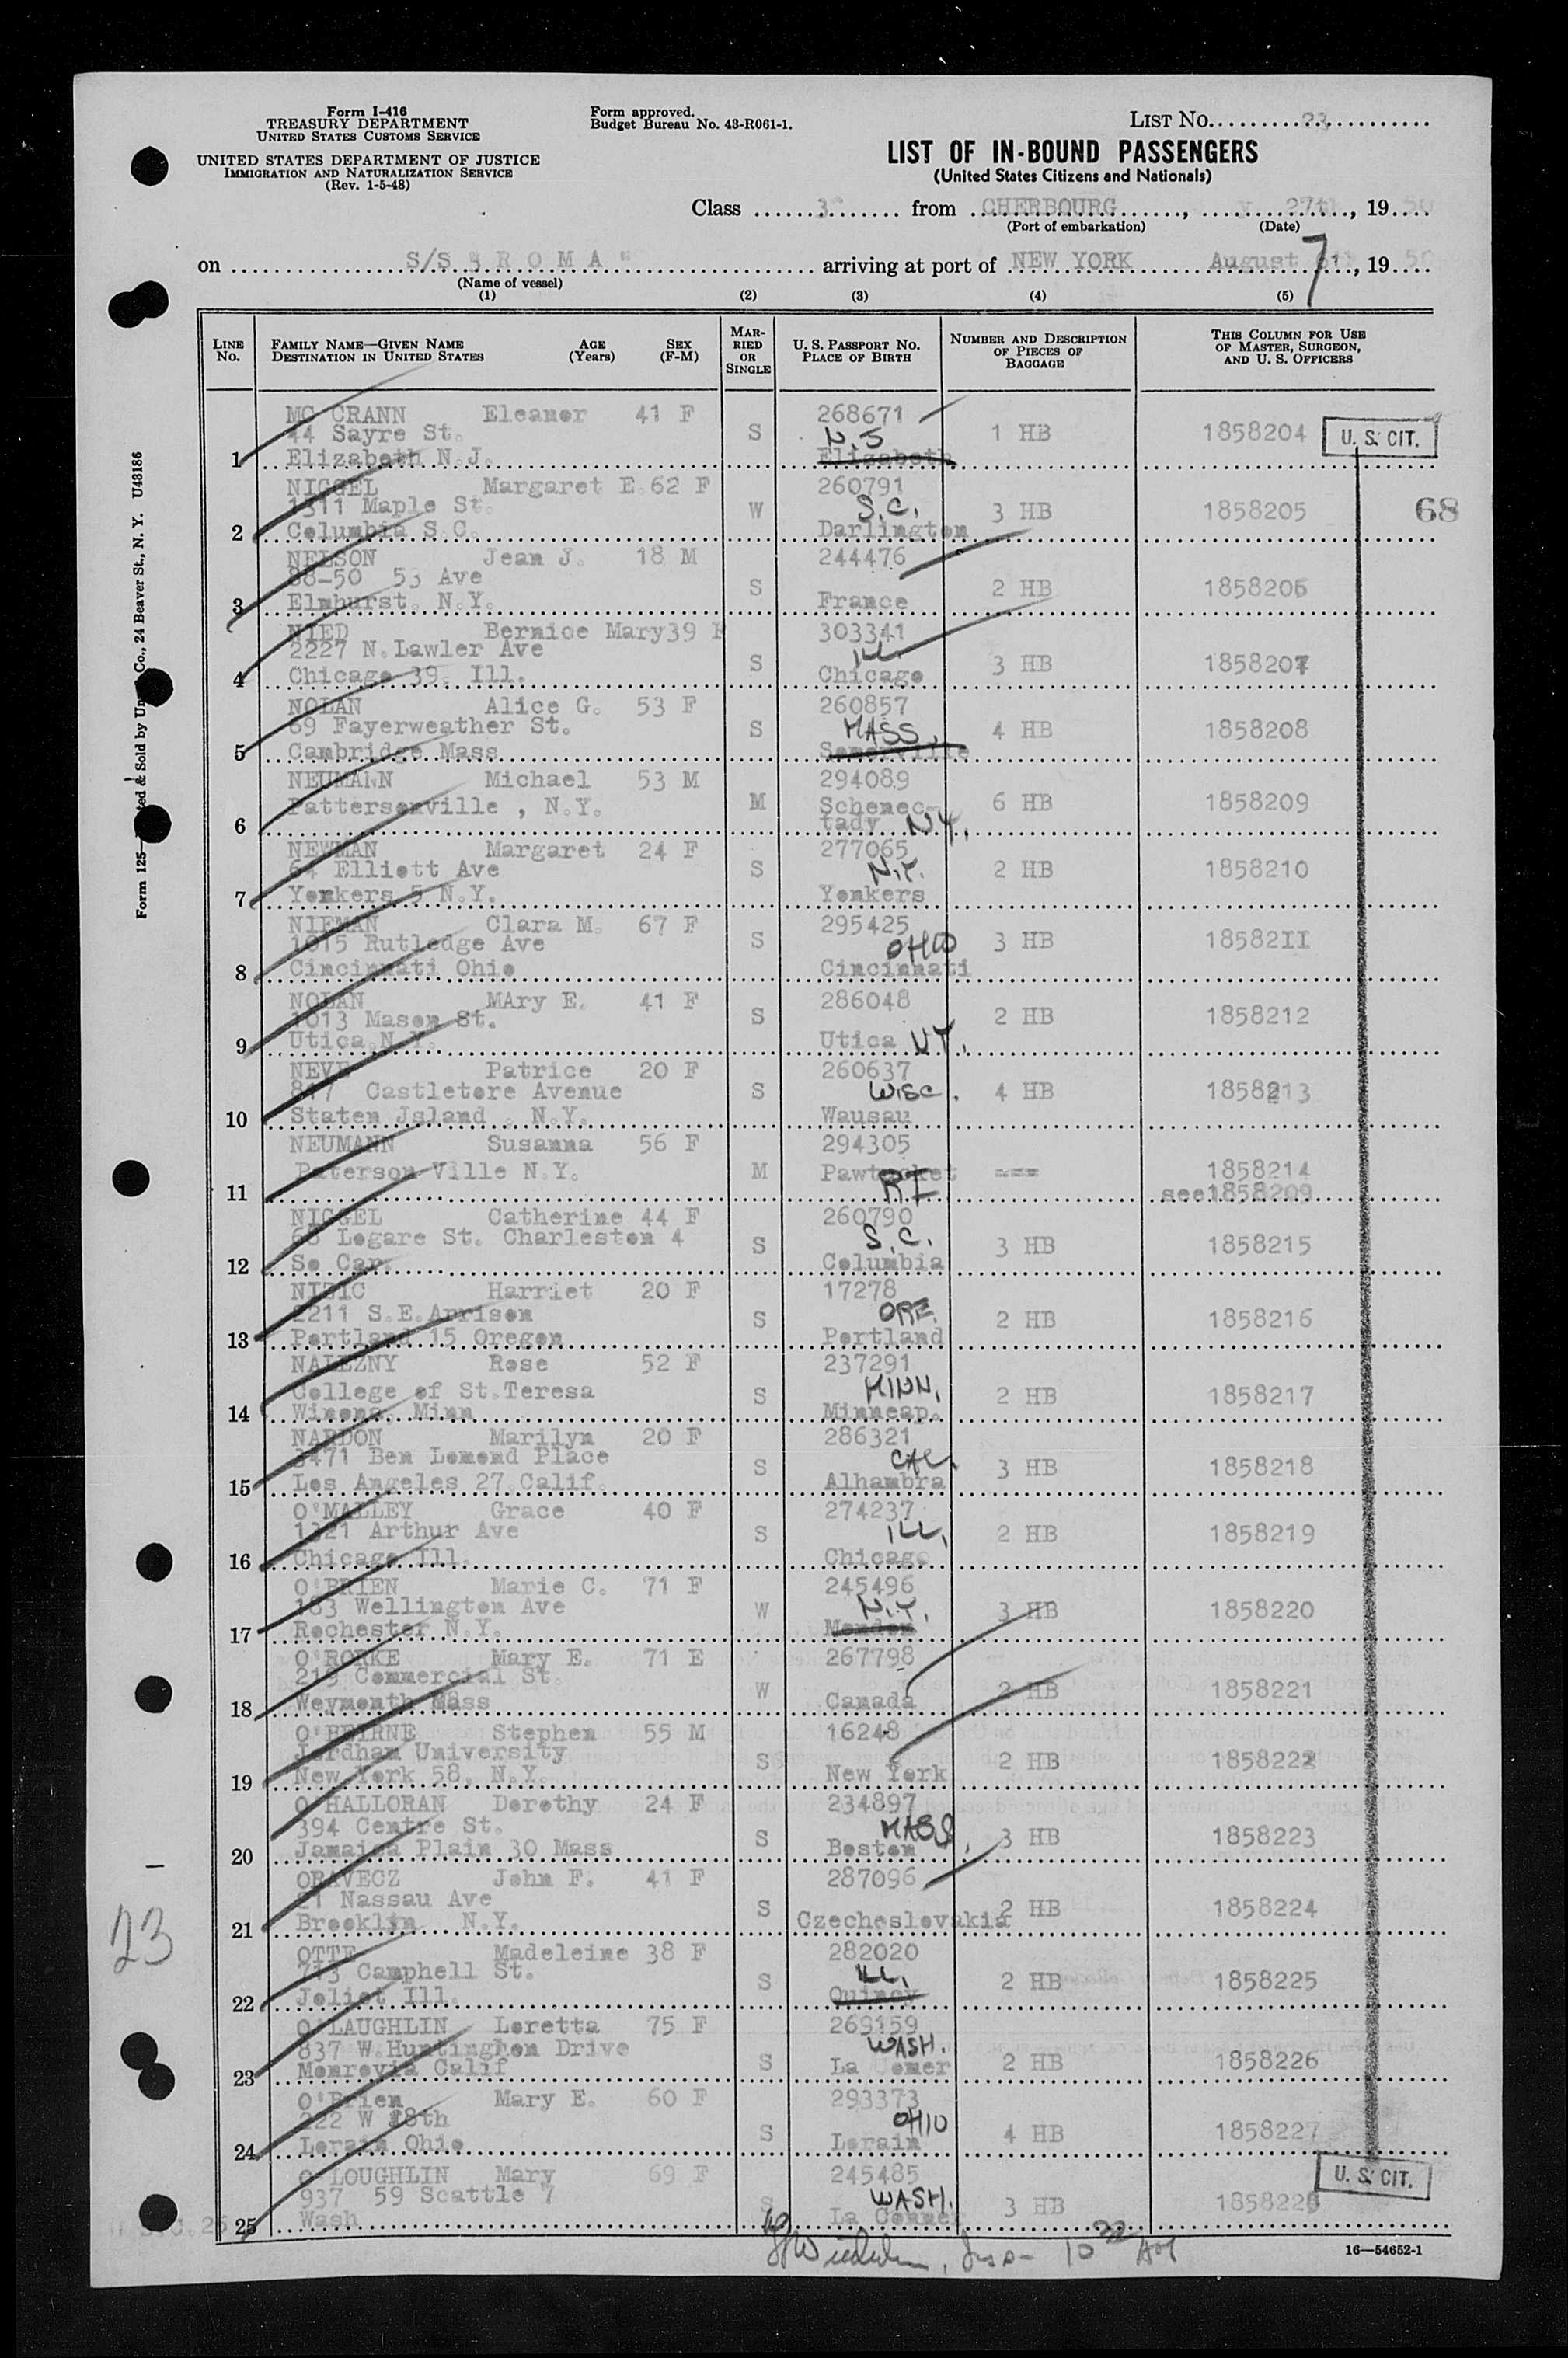 Form I-416
TREASURY DEPARTMENT
UNITED STATES CUSTOMS SERVICE
UNITED STATES DEPARTMENT OF JUSTICE
IMMIGRATION AND NATURALIZATION SERVICE
(Rev. 1-5-48)
Form approved.
Budget Bureau No. 43-R061-1.
LIST No. 23
LIST OF IN-BOUND PASSENGERS
(United States Citizens and Nationals)
Class 3ª from CHERBOURG, y 27th, 1950
(Port of embarkation) (Date)
on S/S " R O M A " arriving at port of NEW YORK August 7, 1950
(Name of vessel)
(1) (2) (3) (4) (5)
LINE No. FAMILY NAME—GIVEN NAME DESTINATION IN UNITED STATES AGE (Years) SEX (F-M) MARRIED OR SINGLE U. S. PASSPORT No. PLACE OF BIRTH NUMBER AND DESCRIPTION OF PIECES OF BAGGAGE THIS COLUMN FOR USE OF MASTER, SURGEON, AND U. S. OFFICERS
MC CRANN Eleanor 41 F 268671
44 Sayre St. S N.J 1 HB 1858204 U. S. CIT.
1 Elizabeth N.J. Elizabeth
NIGGEL Margaret E. 62 F 260791
1311 Maple St. W S.C. 3 HB 1858205 68
2 Columbia S.C. Darlington
NELSON Jean J. 18 M 244476
88-50 53 Ave S 2 HB 1858206
3 Elmhurst. N.Y. France
NIED Bernice Mary 39 F 303341
2227 N. Lawler Ave S ILL. 3 HB 1858207
4 Chicago 39. Ill. Chicago
NOLAN Alice G. 53 F 260857
69 Fayerweather St. S MASS. 4 HB 1858208
5 Cambridge Mass Somerville
NEUMANN Michael 53 M 294089
Pattersonville , N.Y. M Schenec- 6 HB 1858209
6 tady N.Y.
NEWMAN Margaret 24 F 277065
64 Elliott Ave S N.Y. 2 HB 1858210
7 Yonkers 5 N.Y. Yonkers
NIEMAN Clara M. 67 F 295425
1015 Rutledge Ave S OHIO 3 HB 18582II
8 Cincinnati Ohio Cincinnati
NOLAN MAry E. 41 F 286048
1013 Mason St. S 2 HB 1858212
9 Utica N.Y. Utica N.Y.
NEVE Patrice 20 F 260637
817 Castletore Avenue S WISC. 4 HB 1858213
10 Staten Jsland . N.Y. Wausau
NEUMANN Susanna 56 F 294305
Paterson Ville N.Y. M Pawtucket === 1858214
11 RI see1858209
NIGGEL Catherine 44 F 260790
68 Legare St. Charleston 4 S S.C. 3 HB 1858215
12 So Car. Columbia
Harriet 20 F 17278
2211 S.E. Arrison S ORE. 2 HB 1858216
13 Portland 15 Oregon Portland
NALEZNY Rose 52 F 237291
College of St.Teresa S MINN. 2 HB 1858217
14 Winona. Minn Minneap.
NARDON Marilyn 20 F 286321
3471 Ben Lomond Place S CAL. 3 HB 1858218
15 Los Angeles 27 Calif. Alhambra
O'MALLEY Grace 40 F 274237
1321 Arthur Ave S ILL. 2 HB 1858219
16 Chicago Ill. Chicago
O'BRIEN Marie C. 71 F 245496
183 Wellington Ave W N.Y. 3 HB 1858220
17 Rochester N.Y. Mendon
O'RORKE Mary E. 71 E 267798
219 Commercial St. W 2 HB 1858221
18 Weymonth Mass Canada
O'BEIRNE Stephen 55 M 16248
Jordham University S 2 HB 1858222
19 New York 58, N.Y. New York
O'HALLORAN Dorothy 24 F 234897
394 Centre St. S MASS. 3 HB 1858223
20 Jamaica Plain 30 Mass Boston
ORAVECZ John F. 41 F 287096
21 Nassau Ave S 2 HB 1858224
21 Brooklin N.Y. Czechoslovakia
OTTE Madeleine 38 F 282020
713 Camphell St. S ILL. 2 HB 1858225
22 Joliet Ill. Quincy
O'LAUGHLIN Loretta 75 F 269159
837 W. Huntinghon Drive S WASH. 2 HB 1858226
23 Monrovia Calif La Comer
O'Brien Mary E. 60 F 293373
222 W 18th S OHIO 4 HB 1858227
24 Lorain Ohio Lorain
O'LOUGHLIN Mary 69 F 245485 U. S. CIT.
937 59 Seattle 7 S WASH. 3 HB 1858228
25 Wash La Conner
23
Insp- 10 22 AM
16—54652-1
Form 125 & Sold by Co., 24 Beaver St., N. Y. U43186